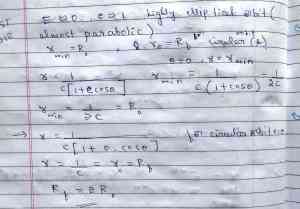 E≈0, e≈1 highly elliptical orbit (
almost parabolic)
r_min = R₀ & r₀ = R_f circular (2)
θ=0, r = r_min
r = 1 / C[1+e cosθ] r_min = 1 / C(1+cosθ) = 1 / 2C
r_min = 1 / 2C = R₀
→ r = 1 / C[1+0.cosθ] for circular orbit e=0
r = 1/C = r₀ = R_f
R_f = 2R₀